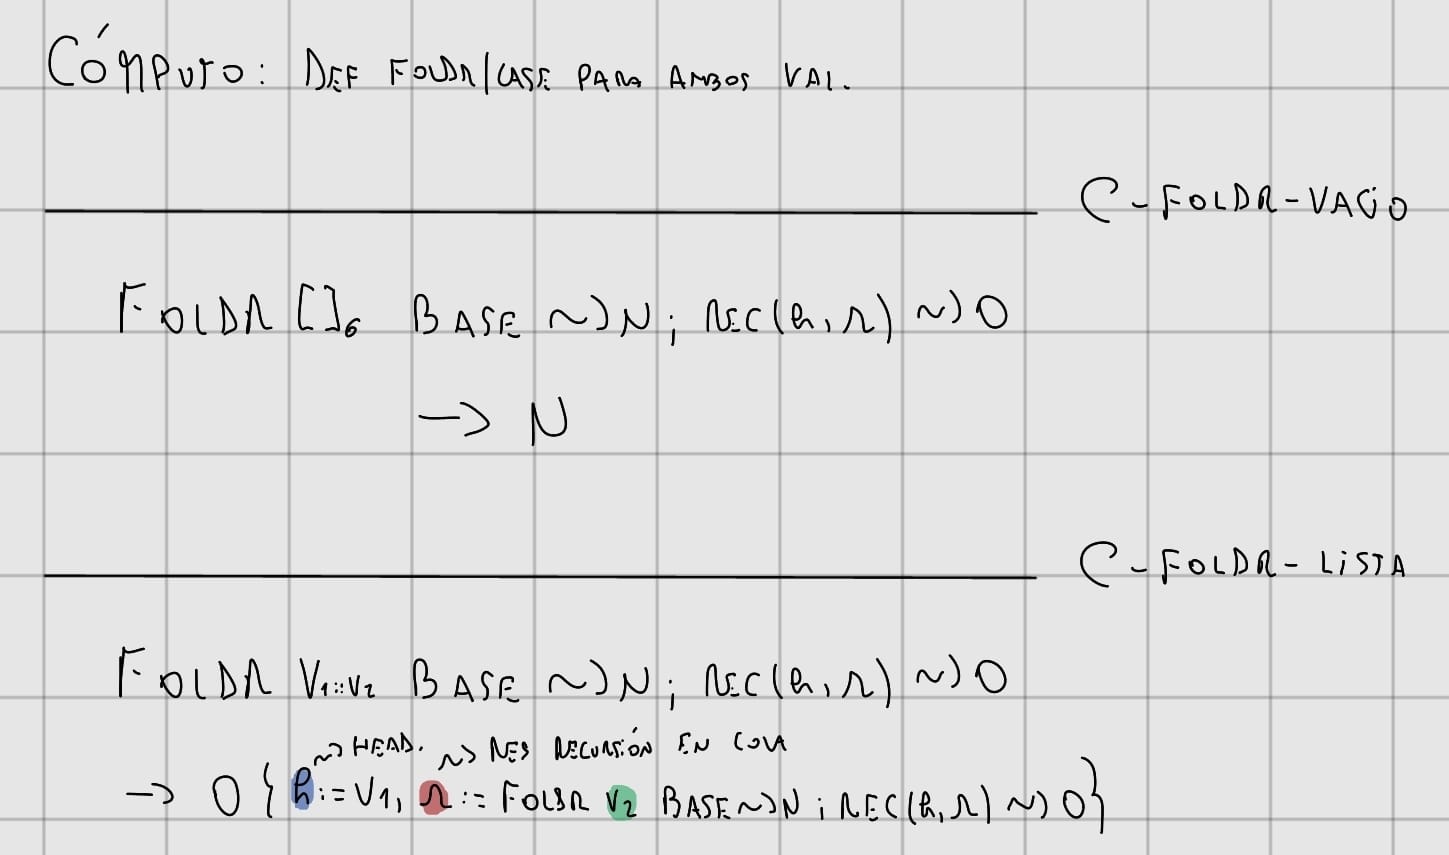 CÓMPUTO: DEF FOLDR/CASE PARA AMBOS VAL.
C-FOLDR-VACÍO
FOLDR []σ BASE ~> N; REC(h, r) ~> O
-> N
C-FOLDR-LISTA
FOLDR V₁::V₂ BASE ~> N; REC(h, r) ~> O
~> HEAD. ~> RES RECURSIÓN EN COLA
-> O { h := V₁, r := FOLDR V₂ BASE ~> N; REC(h, r) ~> O}